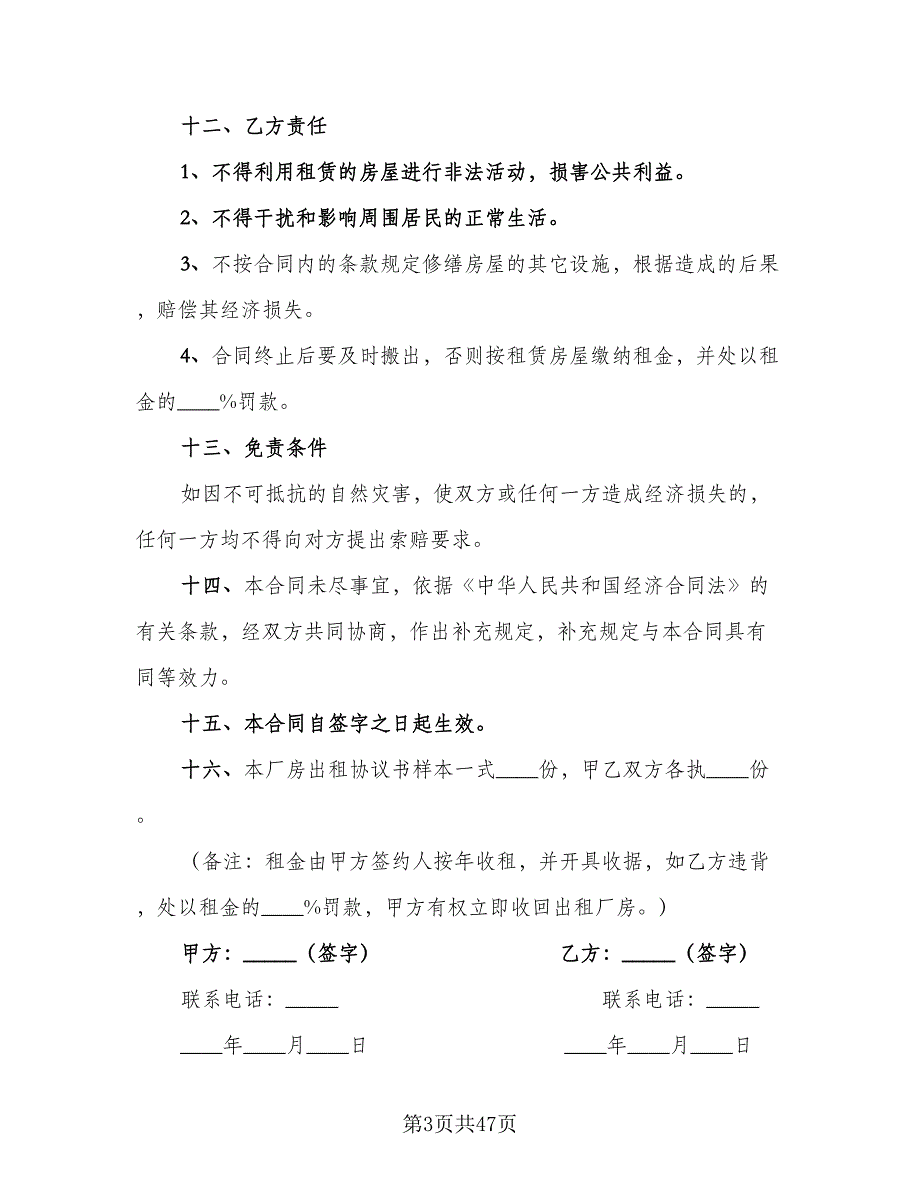 十二、乙方责任
1、不得利用租赁的房屋进行非法活动，损害公共利益。
2、不得干扰和影响周围居民的正常生活。
3、不按合同内的条款规定修缮房屋的其它设施，根据造成的后果
，赔偿其经济损失。
4、合同终止后要及时搬出，否则按租赁房屋缴纳租金，并处以租
金的____%罚款。
十三、免责条件
如因不可抵抗的自然灾害，使双方或任何一方造成经济损失的，
任何一方均不得向对方提出索赔要求。
十四、本合同未尽事宜，依据《中华人民共和国经济合同法》的
有关条款，经双方共同协商，作出补充规定，补充规定与本合同具有
同等效力。
十五、本合同自签字之日起生效。
十六、本厂房出租协议书样本一式____份，甲乙双方各执____份
。
（备注：租金由甲方签约人按年收租，并开具收据，如乙方违背
，处以租金的____%罚款，甲方有权立即收回出租厂房。）
甲方：_____（签字） 乙方：_____（签字）
联系电话：_____ 联系电话：_____
____年____月____日 ____年____月____日
第3页共47页